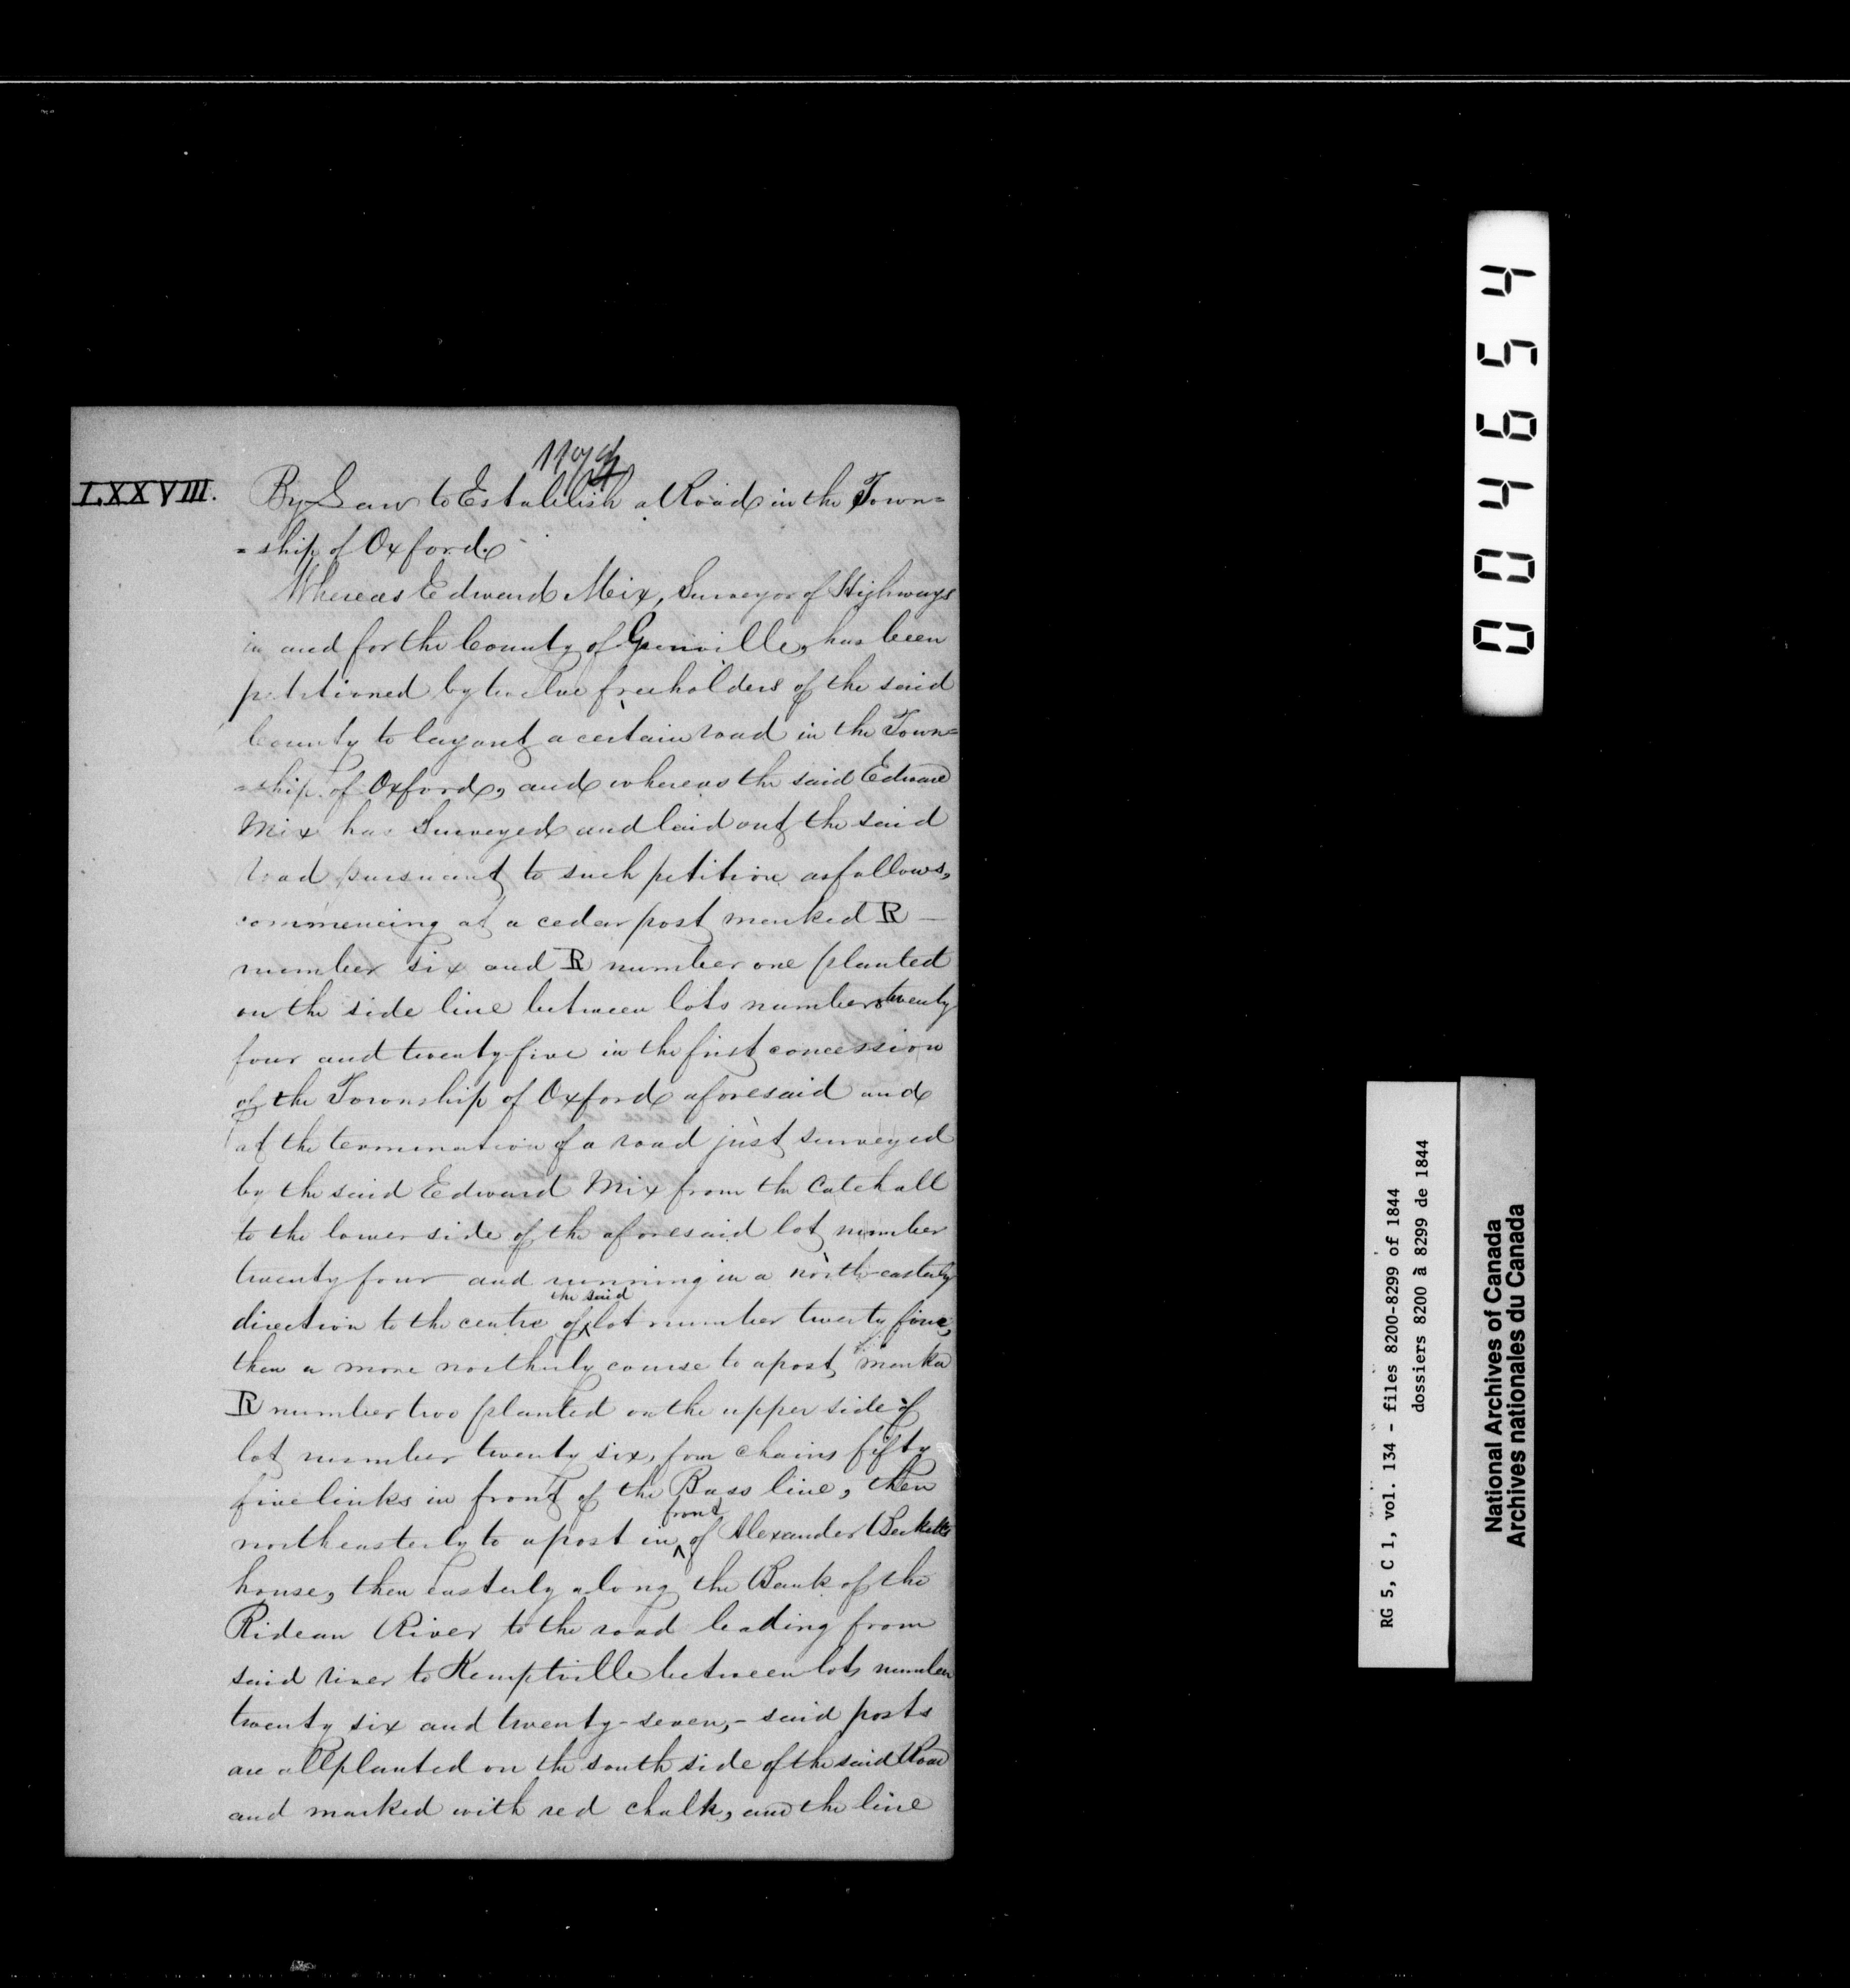 LXXVIII.
By Law to Establish a Road in the Town=
=ship of Oxford.
Whereas Edward Mix, Surveyor of Highways
in and for the County of Grenville, has been
petitioned by twelve freeholders of the said
County to lay out a certain road in the Town=
=ship of Oxford, and whereas the said Edward
Mix has Surveyed and laid out the said
road pursuant to such petition as follows,
commencing at a cedar post marked R —
number six and R number one planted
on the side line between lots numbers twenty
four and twenty-five in the first concession
of the Township of Oxford aforesaid and
at the termination of a road just surveyed
by the said Edward Mix from the Catchall
to the lower side of the aforesaid lot number
twenty four and running in a north-easterly
direction to the centre of the said lot number twenty five,
then a more northerly course to a post marked
R number two planted on the upper side of
lot number twenty six, four chains fifty
five links in front of the Bass line, then
northeasterly to a post in front of Alexander Becketts
house, then easterly along the Bank of the
Rideau River to the road leading from
said river to Kemptville between lots number
twenty six and twenty-seven, - said posts
are all planted on the south side of the said Road
and marked with red chalk, and the line
004654
RG 5, C 1, vol. 134 - files 8200-8299 of 1844
dossiers 8200 à 8299 de 1844
National Archives of Canada
Archives nationales du Canada